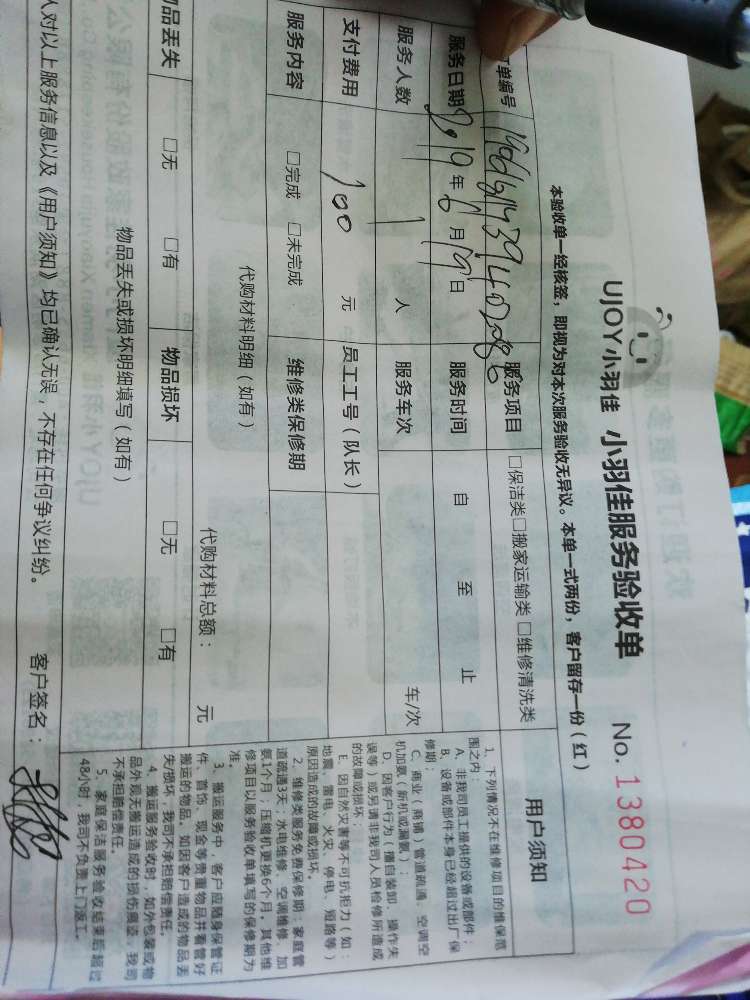 UJOY小羽佳 小羽佳服务验收单 No. 1380420
本验收单一经核签，即视为对本次服务验收无异议。本单一式两份，客户留存一份（红）
订单编号 服务项目 □保洁类□搬家运输类□维修清洗类
服务日期 2019年6月19日 服务时间 自 至 止
服务人数 1 人 服务车次 车/次
支付费用 100 元 员工工号（队长）
服务内容 □完成 □未完成 维修类保修期
代购材料明细（如有） 代购材料总额： 元
物品丢失 □无 □有 物品损坏 □无 □有
物品丢失或损坏明细填写（如有）
人对以上服务信息以及《用户须知》均已确认无误，不存在任何争议纠纷。 客户签名：
用户须知
1、下列情况不在维修项目的维保范
围之内：
A、非我司员工提供的设备或部件；
B、设备或部件本身已经超过出厂保
修期；
C、商业（商铺）管道疏通、空调空
机加氨（新机或漏氨）；
D、因客户行为（擅自装卸、操作失
误等）或另请非我司人员检修所造成
的故障或损坏；
E、因自然灾害等不可抗拒力（如：
地震、雷电、火灾、停电、短路等）
原因造成的故障或损坏。
2、维修类服务免费保修期：家庭管
道疏通3天；水电维修、空调维修、加
氨1个月；压缩机更换6个月。其他维
修项目以服务验收单填写的保修期为
准。
3、搬运服务中，客户应随身保管证
件、首饰、现金等贵重物品并看管好
搬运的物品，如因客户造成的物品丢
失/损坏，我司不承担赔偿责任。
4、搬运服务验收时，如外包装或物
品外观无搬运造成的损伤痕迹，我司
不承担赔偿责任。
5、家庭保洁服务验收结束后超过
48小时，我司不负责上门返工。